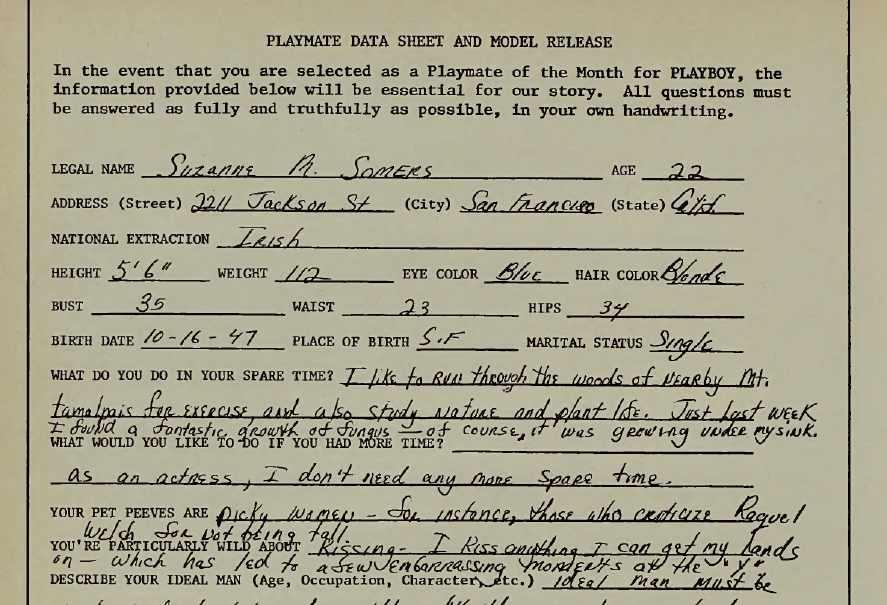 PLAYMATE DATA SHEET AND MODEL RELEASE
In the event that you are selected as a Playmate of the Month for PLAYBOY, the
information provided below will be essential for our story. All questions must
be answered as fully and truthfully as possible, in your own handwriting.
LEGAL NAME Suzanne M. Somers AGE 22
ADDRESS (Street) 2211 Jackson St (City) San Francisco (State) Calif.
NATIONAL EXTRACTION Irish
HEIGHT 5'6" WEIGHT 112 EYE COLOR Blue HAIR COLOR Blonde
BUST 35 WAIST 23 HIPS 34
BIRTH DATE 10-16-47 PLACE OF BIRTH S.F MARITAL STATUS Single
WHAT DO YOU DO IN YOUR SPARE TIME? I like to Run through the woods of nearby Mt.
tamalpais for exercise, and also study nature and plant life. Just last week
I found a fantastic growth of fungus — of course, it was growing under my sink.
WHAT WOULD YOU LIKE TO DO IF YOU HAD MORE TIME?
as an actress, I don't need any more spare time.
YOUR PET PEEVES ARE picky women - for instance, those who criticize Raquel
Welch for not being tall.
YOU'RE PARTICULARLY WILD ABOUT Kissing - I kiss anything I can get my hands
on - which has led to a few embarrassing moments at the "Y"
DESCRIBE YOUR IDEAL MAN (Age, Occupation, Character, etc.) ideal man must be